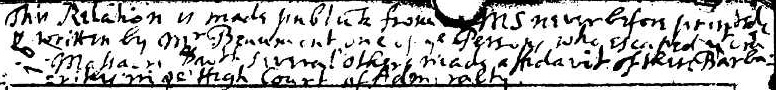 This Relation is made publick from a MS never before printed
& written by Mr Beaumont one of ye Persons who escaped
Massacre. But several others made affidavit of their Barba-
rities in ye High Court of Admiralty.